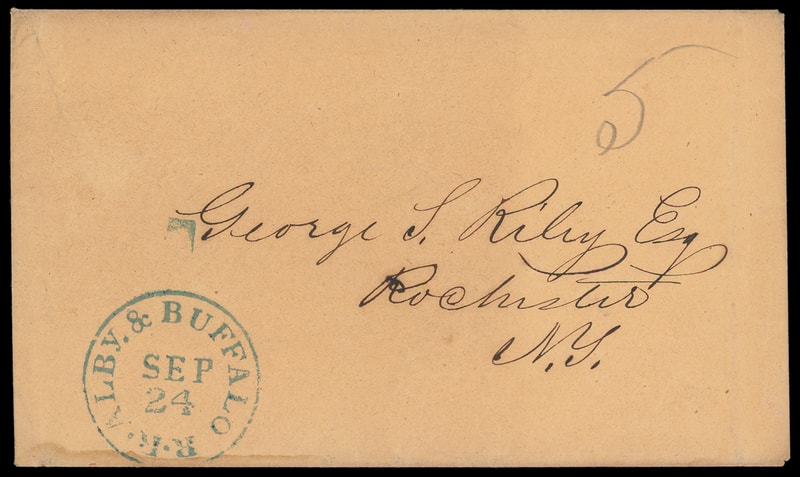 5
George S. Riley Esq
Rochester
N.Y.
ALBY. & BUFFALO R.R.
SEP
24